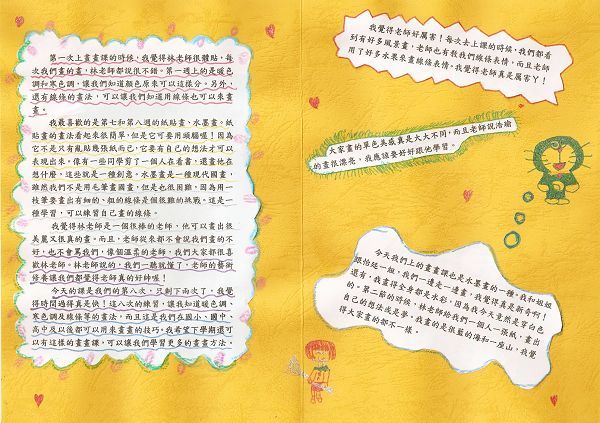 第一次上畫畫課的時候，我覺得林老師很體貼，每
次我們畫的畫，林老師都說很不錯。第一週上的是暖色
調和寒色調，讓我們知道顏色原來可以這樣分。另外，
還有線條的畫法，可以讓我們知道用線條也可以來畫
畫。
我最喜歡的是第七和第八週的紙貼畫、水墨畫。紙
貼畫的畫法看起來很簡單，但是它可要用頭腦喔！因為
它不是只有亂貼幾張紙而已，它要有自己的想法才可以
表現出來，像有一些同學剪了一個人在看書，還畫他在
想什麼，這些就是一種創意。水墨畫是一種現代國畫，
雖然我們不是用毛筆畫國畫，但是也很困難，因為用一
枝筆要畫出有細的、粗的線條是個很難的挑戰。這是一
種學習，可以練習自己畫的線條。
我覺得林老師是一個很棒的老師，他可以畫出很
美麗又很真的畫。而且，老師從來都不會說我們畫的不
好，也不會罵我們，像個溫柔的老師，我們大家都很喜
歡林老師。林老師說的，我們一聽就懂了，老師的藝術
修養讓我們都覺得老師真的好帥喔！
今天的課是我們的第八次，只剩下兩次了，我覺
得時間過得真是快！這八次的練習，讓我知道暖色調、
寒色調及線條等的畫法，而且這是我們在國小、國中、
高中及以後都可以用來畫畫的技巧。我希望下學期還可
以有這樣的畫畫課，可以讓我們學習更多的畫畫方法。
我覺得老師好厲害！每次去上課的時候，我們都看
到有好多風景畫，老師也有教我們線條表情，而且老師
用了好多水果來畫線條表情，我覺得老師真是厲害了！
大家畫的單色美感真是大大不同，而且老師說浩瑜
的畫很漂亮，我應該要好好跟他學習。
今天我們上的畫畫課也是水墨畫的一種，我和姐姐
跟怡廷一組，我們一邊走一邊畫，我覺得真是新奇啊！
還有，我畫得全身都是水彩，因為我今天竟然是穿白色
的。第二節的時候，林老師給我們一個人一張紙，畫出
自己的想法或是夢，我畫的是很藍的海和一座山，我覺
得大家畫的都不一樣。